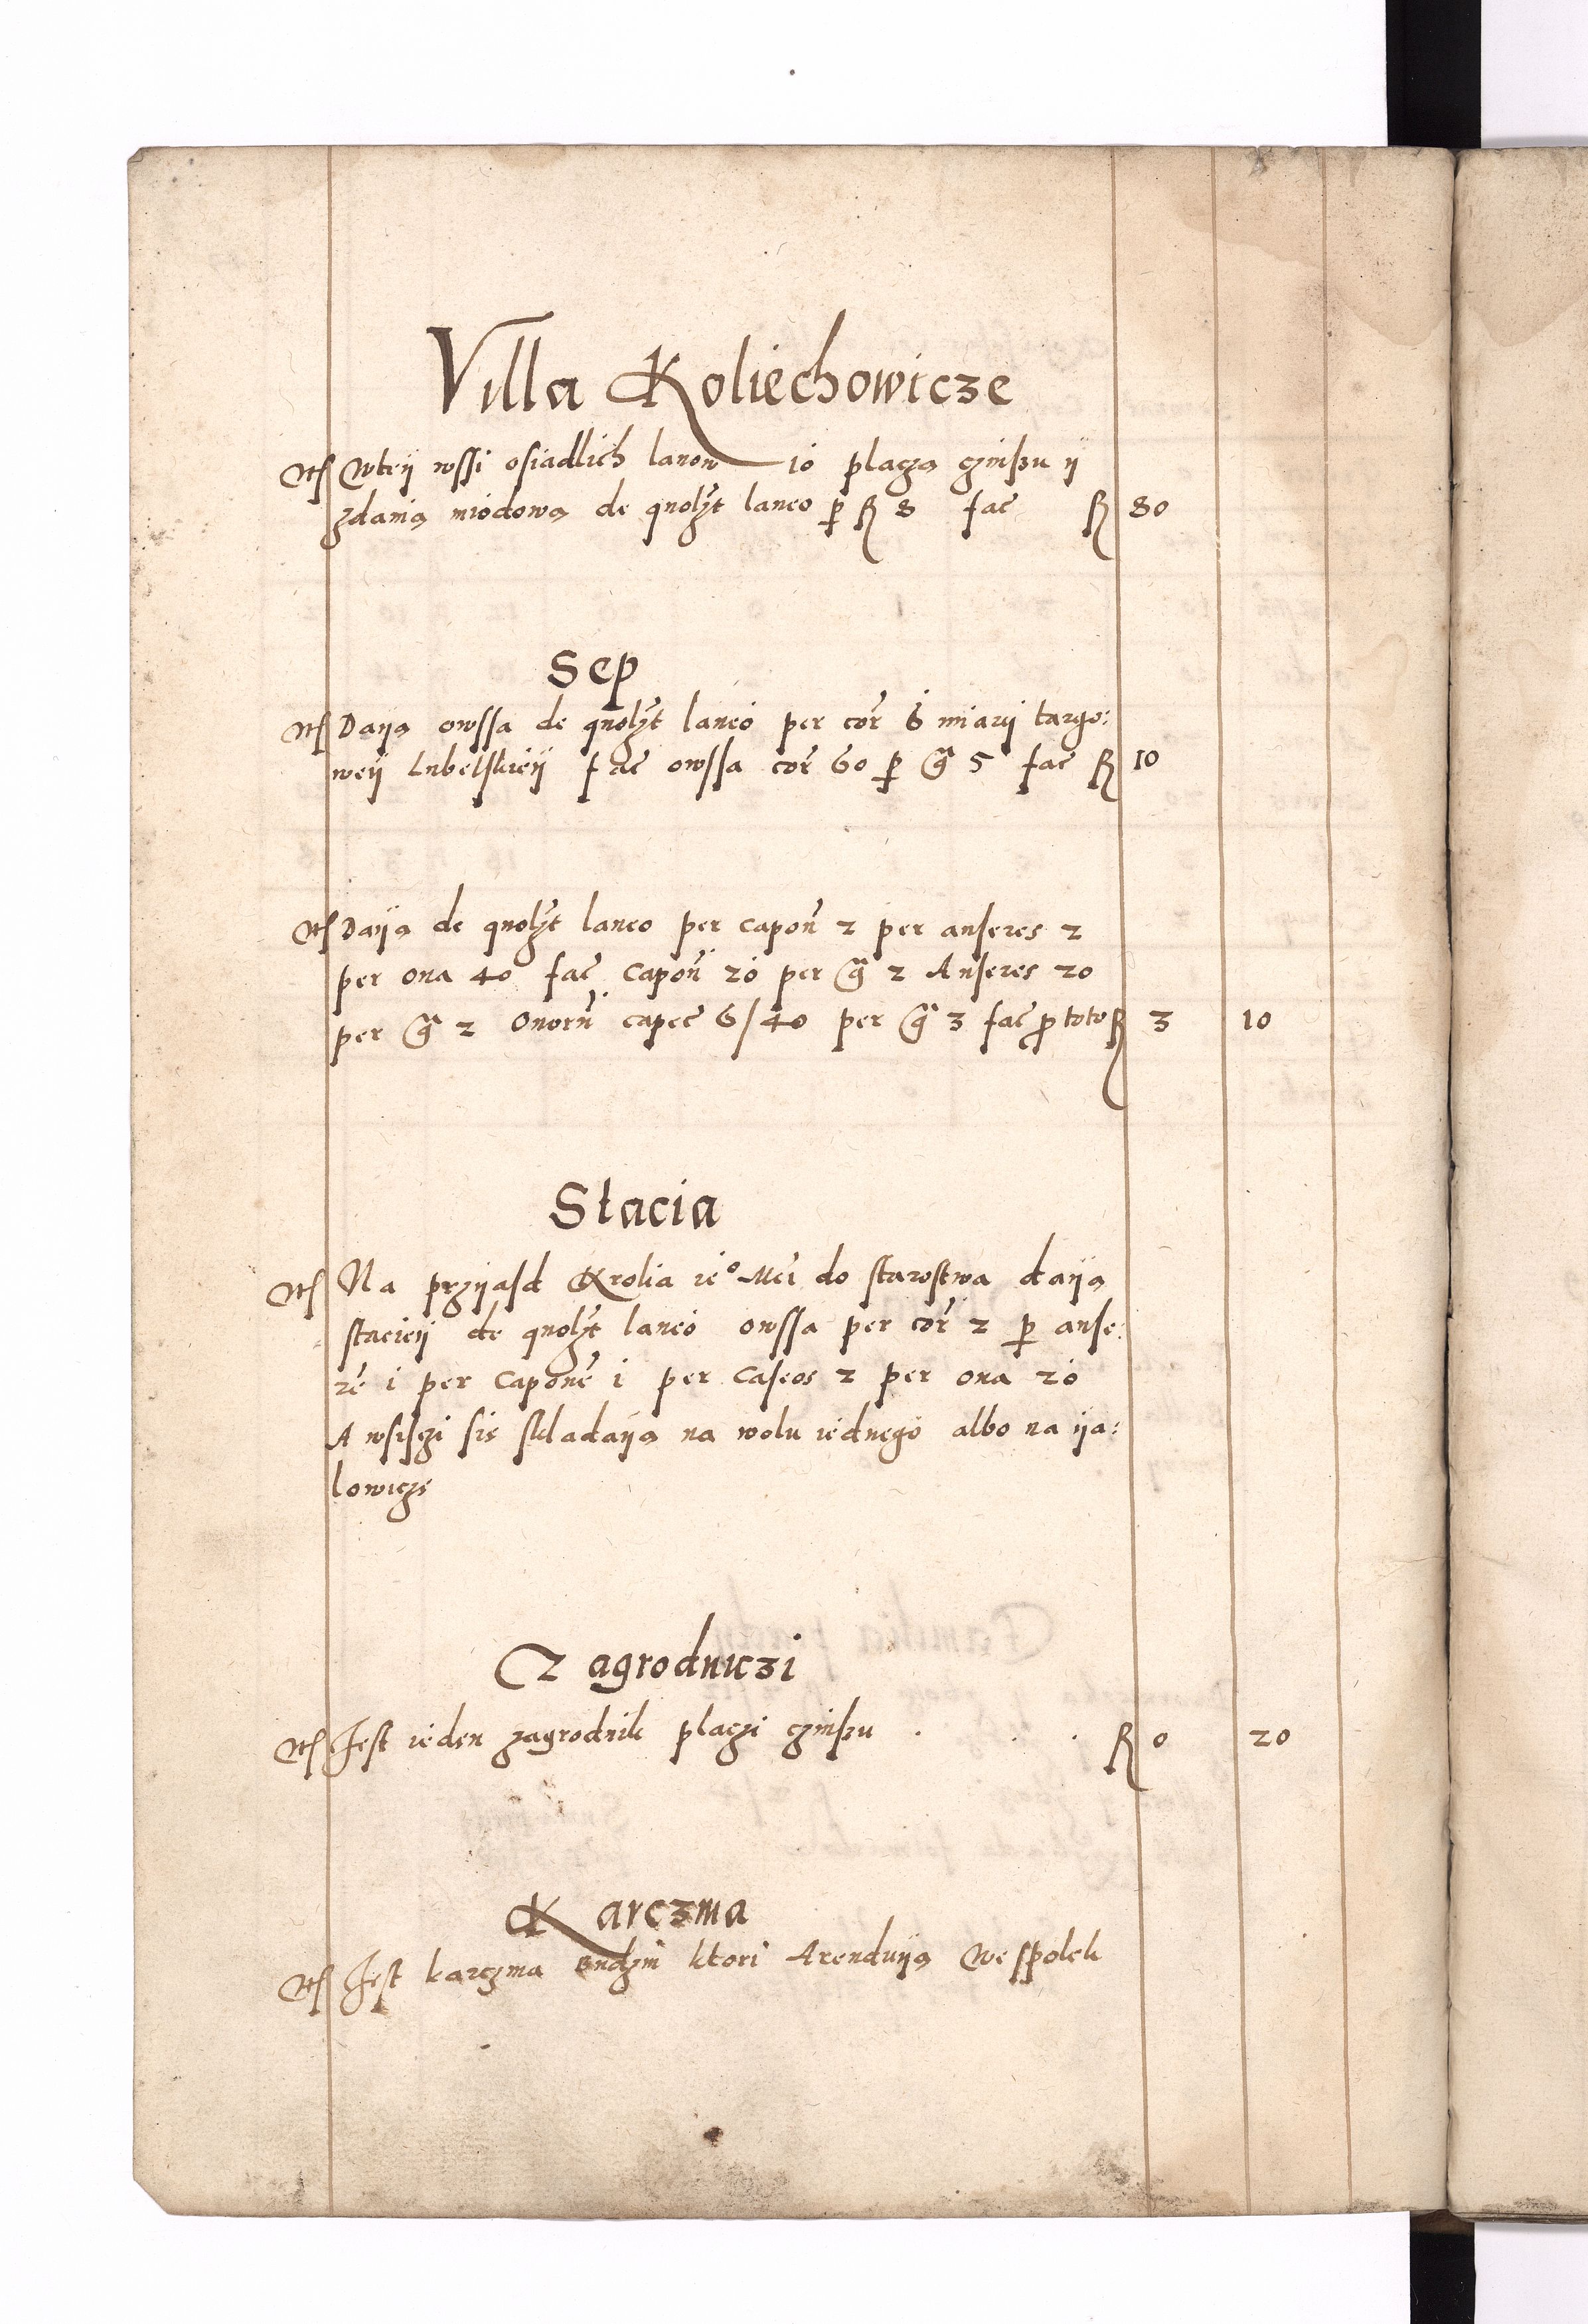 Villa Koliechowicze
Itē Wteÿ wssi osiadlich lanow 10 placzą czinszu ÿ
zdanią miodową de quolꝫt laneo ꝑ fl 8 fac̄ fl 80
Sep
Itē Daiją owssa de quolꝫt laneo per cor̄ 6 miarÿ targo:
weÿ Lubelskieÿ fac̄ owssa cor̄ 60 ꝑ g̃ 5 fac̄ fl 10
Itē Daiją de quolꝫt laneo per capoñ 2 per anseres 2
per oua 40 fac̄ Capoñ 20 per g̃ 2 Anseres 20
per g̃ 2 Ouorū capec̄ 6/40 per g̃ 3 fac̄ ꝓ toto fl 3 10
Stacia
Itē Na przÿasd Krolia ie° Mci do starostwa daiją
stacieÿ de quolꝫt laneo owssa per cor̄ 2 ꝑ anse:
rē 1 per Caponē 1 per Caseos 2 per oua 20
A wsisczi sie skladaiją na wolu iednego albo na ija:
lowicze
Zagrodniczi
Itē Jest ieden zagrodnik placzi czinszu . . . fl 0 20
Karczma
Itē Jest karczma ktori Arenduiją Wespolek